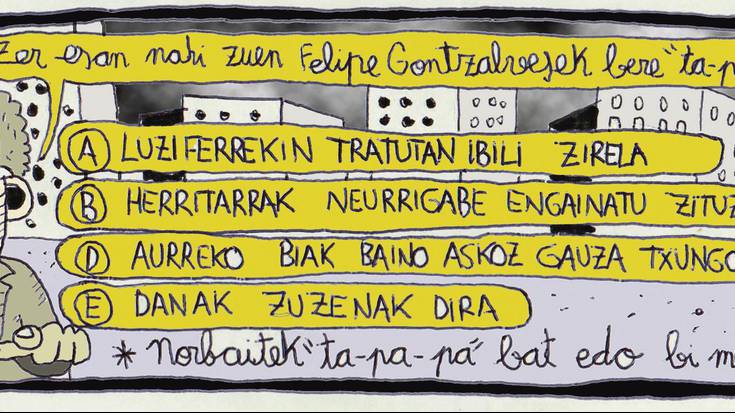 Zer esan nahi zuen Felipe Gontzalvesek bere "ta-p
A LUZIFERREKIN TRATUTAN IBILI ZIRELA
B HERRITARRAK NEURRIGABE ENGAINATU ZITUZ
D AURREKO BIAK BAINO ASKOZ GAUZA TXUNGO
E DANAK ZUZENAK DIRA
* Norbaitek "ta-pa-pá" bat edo bi m